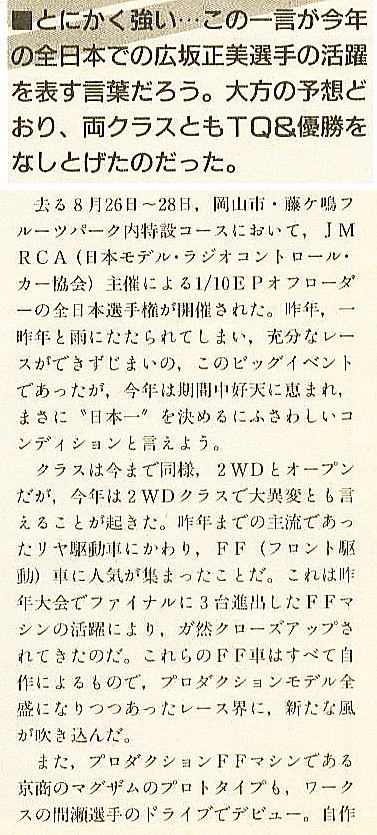 ■とにかく強い…この一言が今年
の全日本での広坂正美選手の活躍
を表す言葉だろう。大方の予想ど
おり、両クラスともTQ&優勝を
なしとげたのだった。
去る8月26日〜28日，岡山市・藤ケ鳴フ
ルーツパーク内特設コースにおいて，JM
RCA（日本モデル・ラジオコントロール・
カー協会）主催による1/10EPオフローダ
ーの全日本選手権が開催された。昨年，一
昨年と雨にたたられてしまい，充分なレー
スができずじまいの，このビッグイベント
であったが，今年は期間中好天に恵まれ，
まさに〝日本一〟を決めるにふさわしいコ
ンディションと言えよう。
クラスは今まで同様，2WDとオープン
だが，今年は2WDクラスで大異変とも言
えることが起きた。昨年までの主流であっ
たリヤ駆動車にかわり，FF（フロント駆
動）車に人気が集まったことだ。これは昨
年大会でファイナルに3台進出したFFマ
シンの活躍により，ガ然クローズアップさ
れてきたのだ。これらのFF車はすべて自
作によるもので，プロダクションモデル全
盛になりつつあったレース界に，新たな風
が吹き込んだ。
また，プロダクションFFマシンである
京商のマグザムのプロトタイプも，ワーク
スの間瀬選手のドライブでデビュー。自作